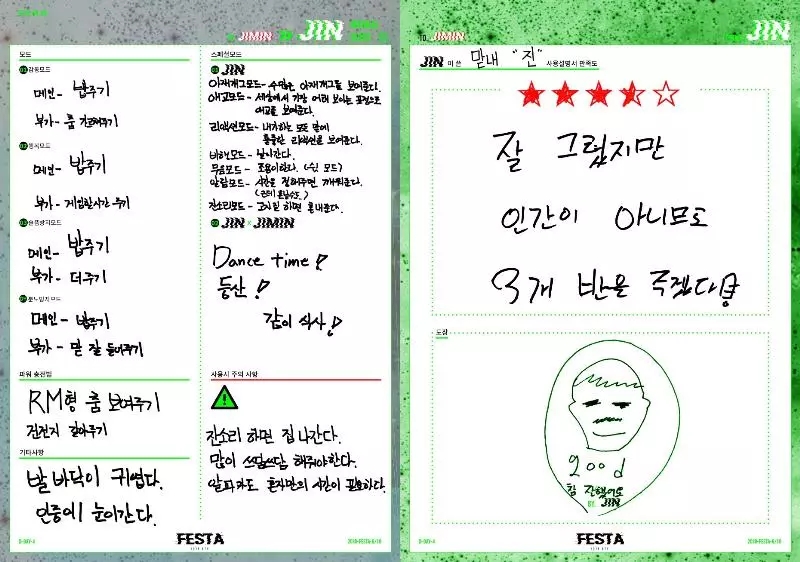 JIMIN
JIN
모드
01 감동모드
메인- 밥주기
부가- 춤 가르쳐주기
02 행복모드
메인- 밥주기
부가- 게임할시간 주기
03 슬픔방지모드
메인- 밥주기
부가- 더주기
04 분노방지모드
메인- 밥주기
부가- 말 잘 들어주기
파워 충전법
RM형 춤 보여주기
건전지 갈아주기
기타사항
발바닥이 귀엽다.
인중에 눈이간다.
D-DAY-4
스페셜모드
01 JIN
아재개그모드- 수많은 아재개그를 보여준다.
애교모드- 세상에서 가장 어려 보이는 표정으로
애교를 보여준다.
리액션모드- 내가하는 모든 말에
훌륭한 리액션으로 보여준다.
비행모드- 날아간다.
무음모드- 조용해진다. (수신 모드)
알람모드- 시간을 정해주면 깨워준다.
잔소리모드- 고치질 하면 혼내준다.
02 JIN x JIMIN
Dance time!
등산!
같이 식사!
사용시 주의 사항
잔소리 하면 집 나간다.
많이 쓰담쓰담 해줘야한다.
알파카도 혼자만의 시간이 필요하다.
FESTA
2018-FESTA-6/10
TO. JIMIN
JIN
JIN 이 쓴 맏내 "진" 사용설명서 만족도
잘 그렸지만
인간이 아니므로
3개 반을 주겠다
도장
good
참 잘했어요
BY. JIN
D-DAY-4
FESTA
2018-FESTA-6/10